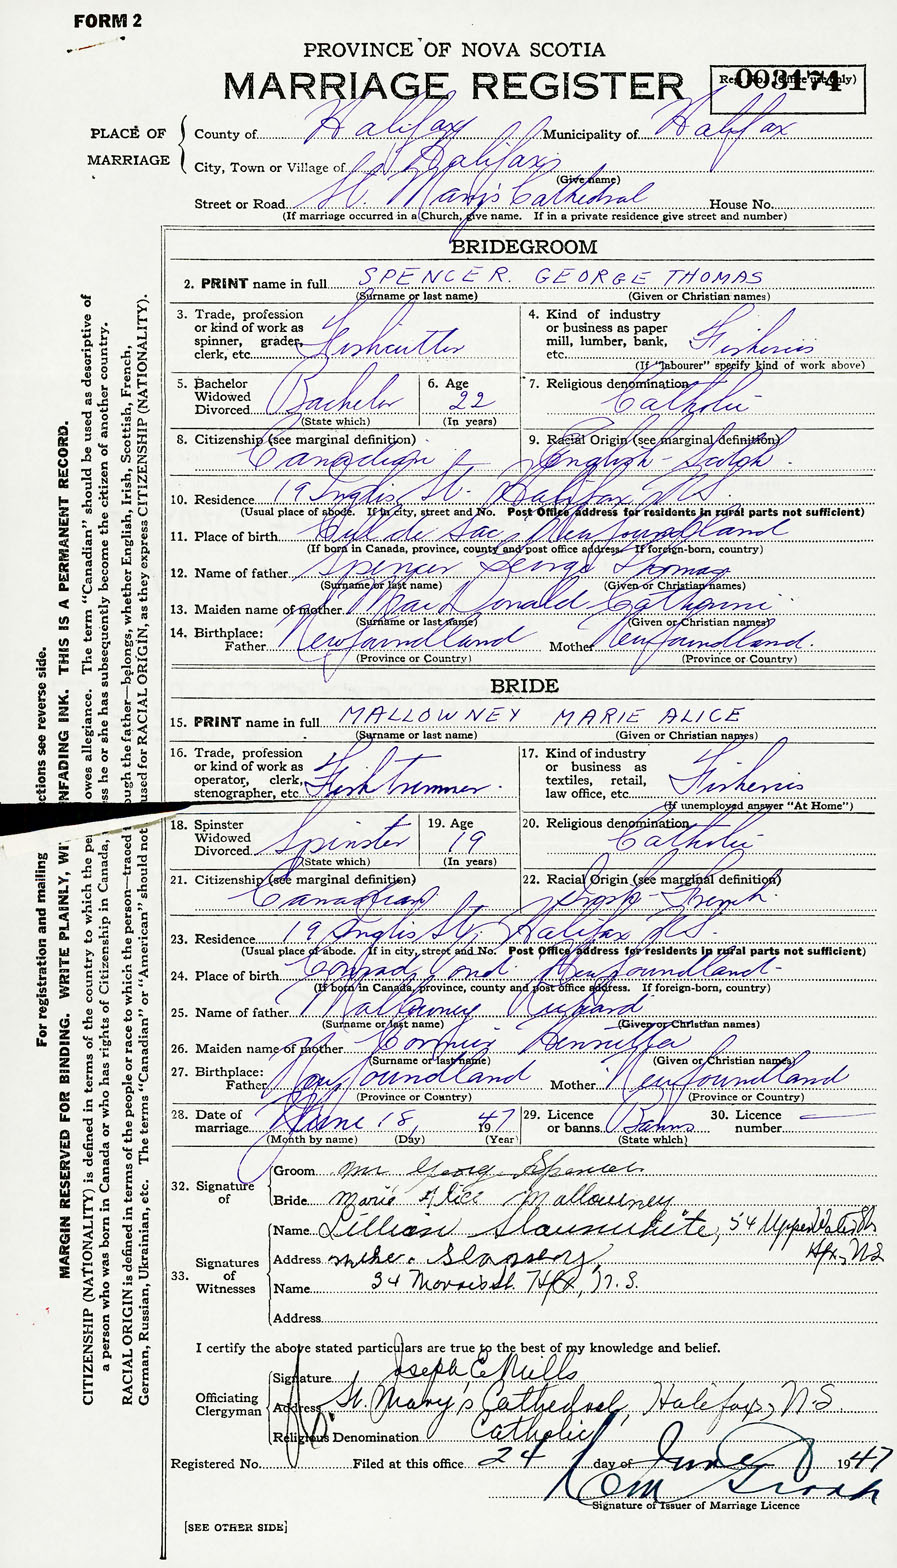 FORM 2
PROVINCE OF NOVA SCOTIA
MARRIAGE REGISTER
Reg. No. (Office use only) 003174
PLACE OF MARRIAGE
County of Halifax Municipality of Halifax
City, Town or Village of Halifax
(Give name)
Street or Road St. Mary's Cathedral House No.
(If marriage occurred in a Church, give name. If in a private residence give street and number)
BRIDEGROOM
2. PRINT name in full SPENCER. GEORGE THOMAS
(Surname or last name) (Given or Christian names)
3. Trade, profession or kind of work as spinner, grader, clerk, etc. Fishcutter
4. Kind of industry or business as paper mill, lumber, bank, etc. Fisheries
(If "labourer" specify kind of work above)
5. Bachelor Widowed Divorced Bachelor
(State which)
6. Age 22
(In years)
7. Religious denomination Catholic
8. Citizenship (see marginal definition) Canadian
9. Racial Origin (see marginal definition) English-Scotch
10. Residence 19 Inglis St. Halifax N.S.
(Usual place of abode. If in city, street and No. Post Office address for residents in rural parts not sufficient)
11. Place of birth Cul de Sac, Newfoundland
(If born in Canada, province, county and post office address. If foreign-born, country)
12. Name of father Spencer George Thomas
(Surname or last name) (Given or Christian names)
13. Maiden name of mother MacDonald Catherine
(Surname or last name) (Given or Christian names)
14. Birthplace: Father Newfoundland Mother Newfoundland.
(Province or Country) (Province or Country)
BRIDE
15. PRINT name in full MALLOWNEY MARIE ALICE
(Surname or last name) (Given or Christian names)
16. Trade, profession or kind of work as operator, clerk, stenographer, etc. Fish trimmer.
17. Kind of industry or business as textiles, retail, law office, etc. Fisheries
(If unemployed answer "At Home")
18. Spinster Widowed Divorced Spinster
(State which)
19. Age 19
(In years)
20. Religious denomination Catholic
21. Citizenship (see marginal definition) Canadian
22. Racial Origin (see marginal definition) French
23. Residence 19 Inglis St; Halifax N.S.
(Usual place of abode. If in city, street and No. Post Office address for residents in rural parts not sufficient)
24. Place of birth Conrad Pond. Newfoundland-
(If born in Canada, province, county and post office address. If foreign-born, country)
25. Name of father Mallowney Richard
(Surname or last name) (Given or Christian names)
26. Maiden name of mother Cormier Henrietta
(Surname or last name) (Given or Christian names)
27. Birthplace: Father Newfoundland Mother Newfoundland
(Province or Country) (Province or Country)
28. Date of marriage June 18, 1947
(Month by name) (Day) (Year)
29. Licence or banns Banns
(State which)
30. Licence number
32. Signature of
Groom Mr George Spencer
Bride Marie Alice Mallowney
33. Signatures of Witnesses
Name Lillian Slaunwhite, 54 Upper Water St
Address Hfx, N.S
Name 34 Morris St. Hfx, N.S.
Address
I certify the above stated particulars are true to the best of my knowledge and belief.
Officiating Clergyman
Signature Joseph E. Mills
Address St. Mary's Cathedral, Halifax, N.S.
Religious Denomination Catholic
Registered No. Filed at this office 24 day of June 1947
Signature of Issuer of Marriage Licence
[SEE OTHER SIDE]
For registration and mailing
ctions see reverse side.
MARGIN RESERVED FOR BINDING. WRITE PLAINLY, WI
NFADING INK. THIS IS A PERMANENT RECORD.
CITIZENSHIP (NATIONALITY) is defined in terms of the country to which the pe
owes allegiance. The term "Canadian" should be used as descriptive of
a person who was born in Canada or who has rights of Citizenship in Canada,
ss he or she has subsequently become the citizen of another country.
RACIAL ORIGIN is defined in terms of the people or race to which the person—traced
ough the father—belongs, whether English, Irish, Scottish, French,
German, Russian, Ukrainian, etc. The terms "Canadian" or "American" should not
used for RACIAL ORIGIN, as they express CITIZENSHIP (NATIONALITY).